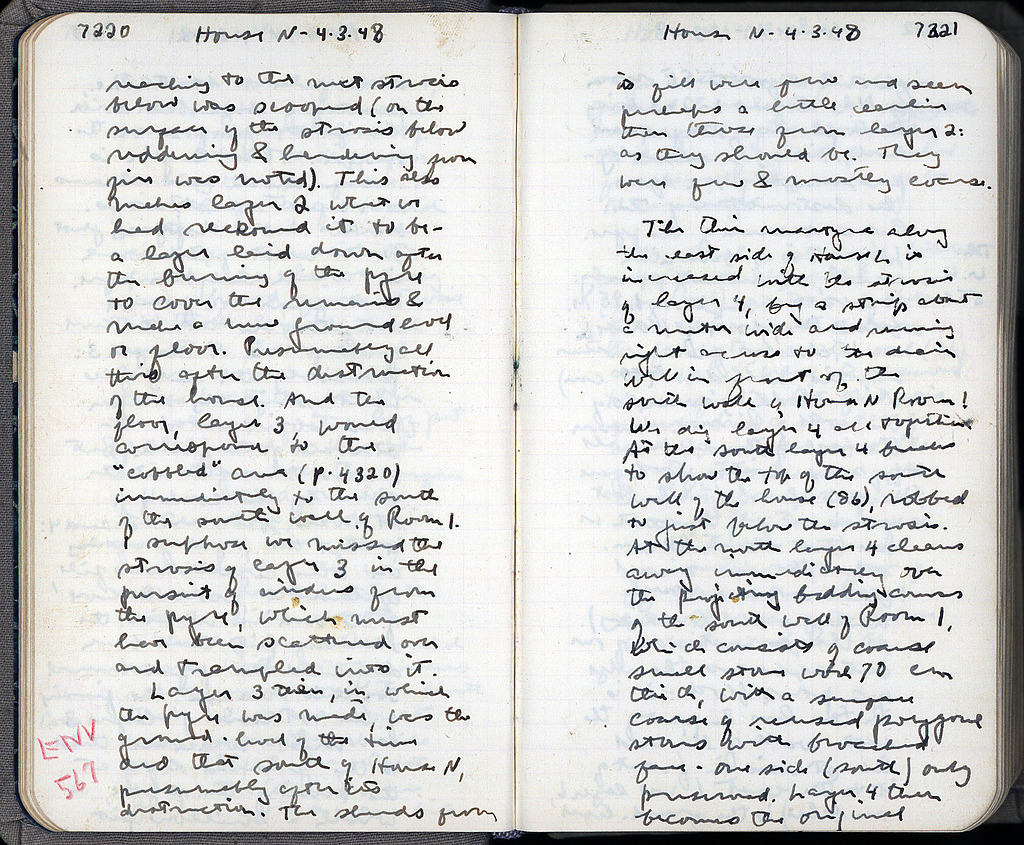 7220 House N - 4.3.48
reaching to the next strosis
below was scooped (on the
surface of the strosis below
reddening & hardening from
fire was noted). This also
makes layer 2 what we
had reckoned it to be -
a layer laid down after
the burning of the pyre
to cover the remains &
make a new ground level
or floor. Presumably all
this after the destruction
of the house. And the
floor, layer 3, would
correspond to the
"cobbled" area (p. 4320)
immediately to the south
of the south wall of Room 1.
I suppose we missed the
strosis of layer 3 in the
pursuit of cinders from
the pyre, which must
have been scattered over
and trampled into it.
Layer 3 then, in which
the pyre was made, was the
ground-level of the time
and that south of House N,
presumably after its
destruction. The sherds from
ENV
567
House N - 4.3.48 7221
its fill were few and seem
perhaps a little earlier
than those from layer 2:
as they should be. They
were few & mostly coarse.
The thin martyra along
the east side of House L is
increased with the strosis
of layer 4, by a strip about
a meter wide and running
right across to the drain
well in front of the
south wall of House N Room 1.
We dig layer 4 all together.
At the south layer 4 breaks
to show the top of the south
wall of the house (86), robbed
to just below the strosis.
At the north layer 4 cleans
away immediately over
the projecting bedding course
of the south wall of Room 1,
which consists of coarse
small stone work 70 cm
thick, with a single
course of reused polygonal
stones with broached
face - one side (south) only
preserved. Layer 4 then
becomes the original